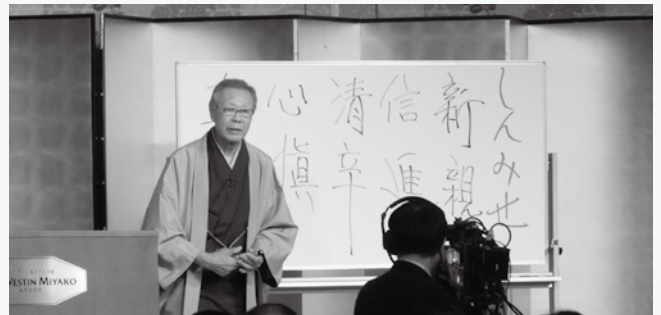 しんみせ
新親
信進
清辛
心愼
WESTIN MIYAKO
KYOTO